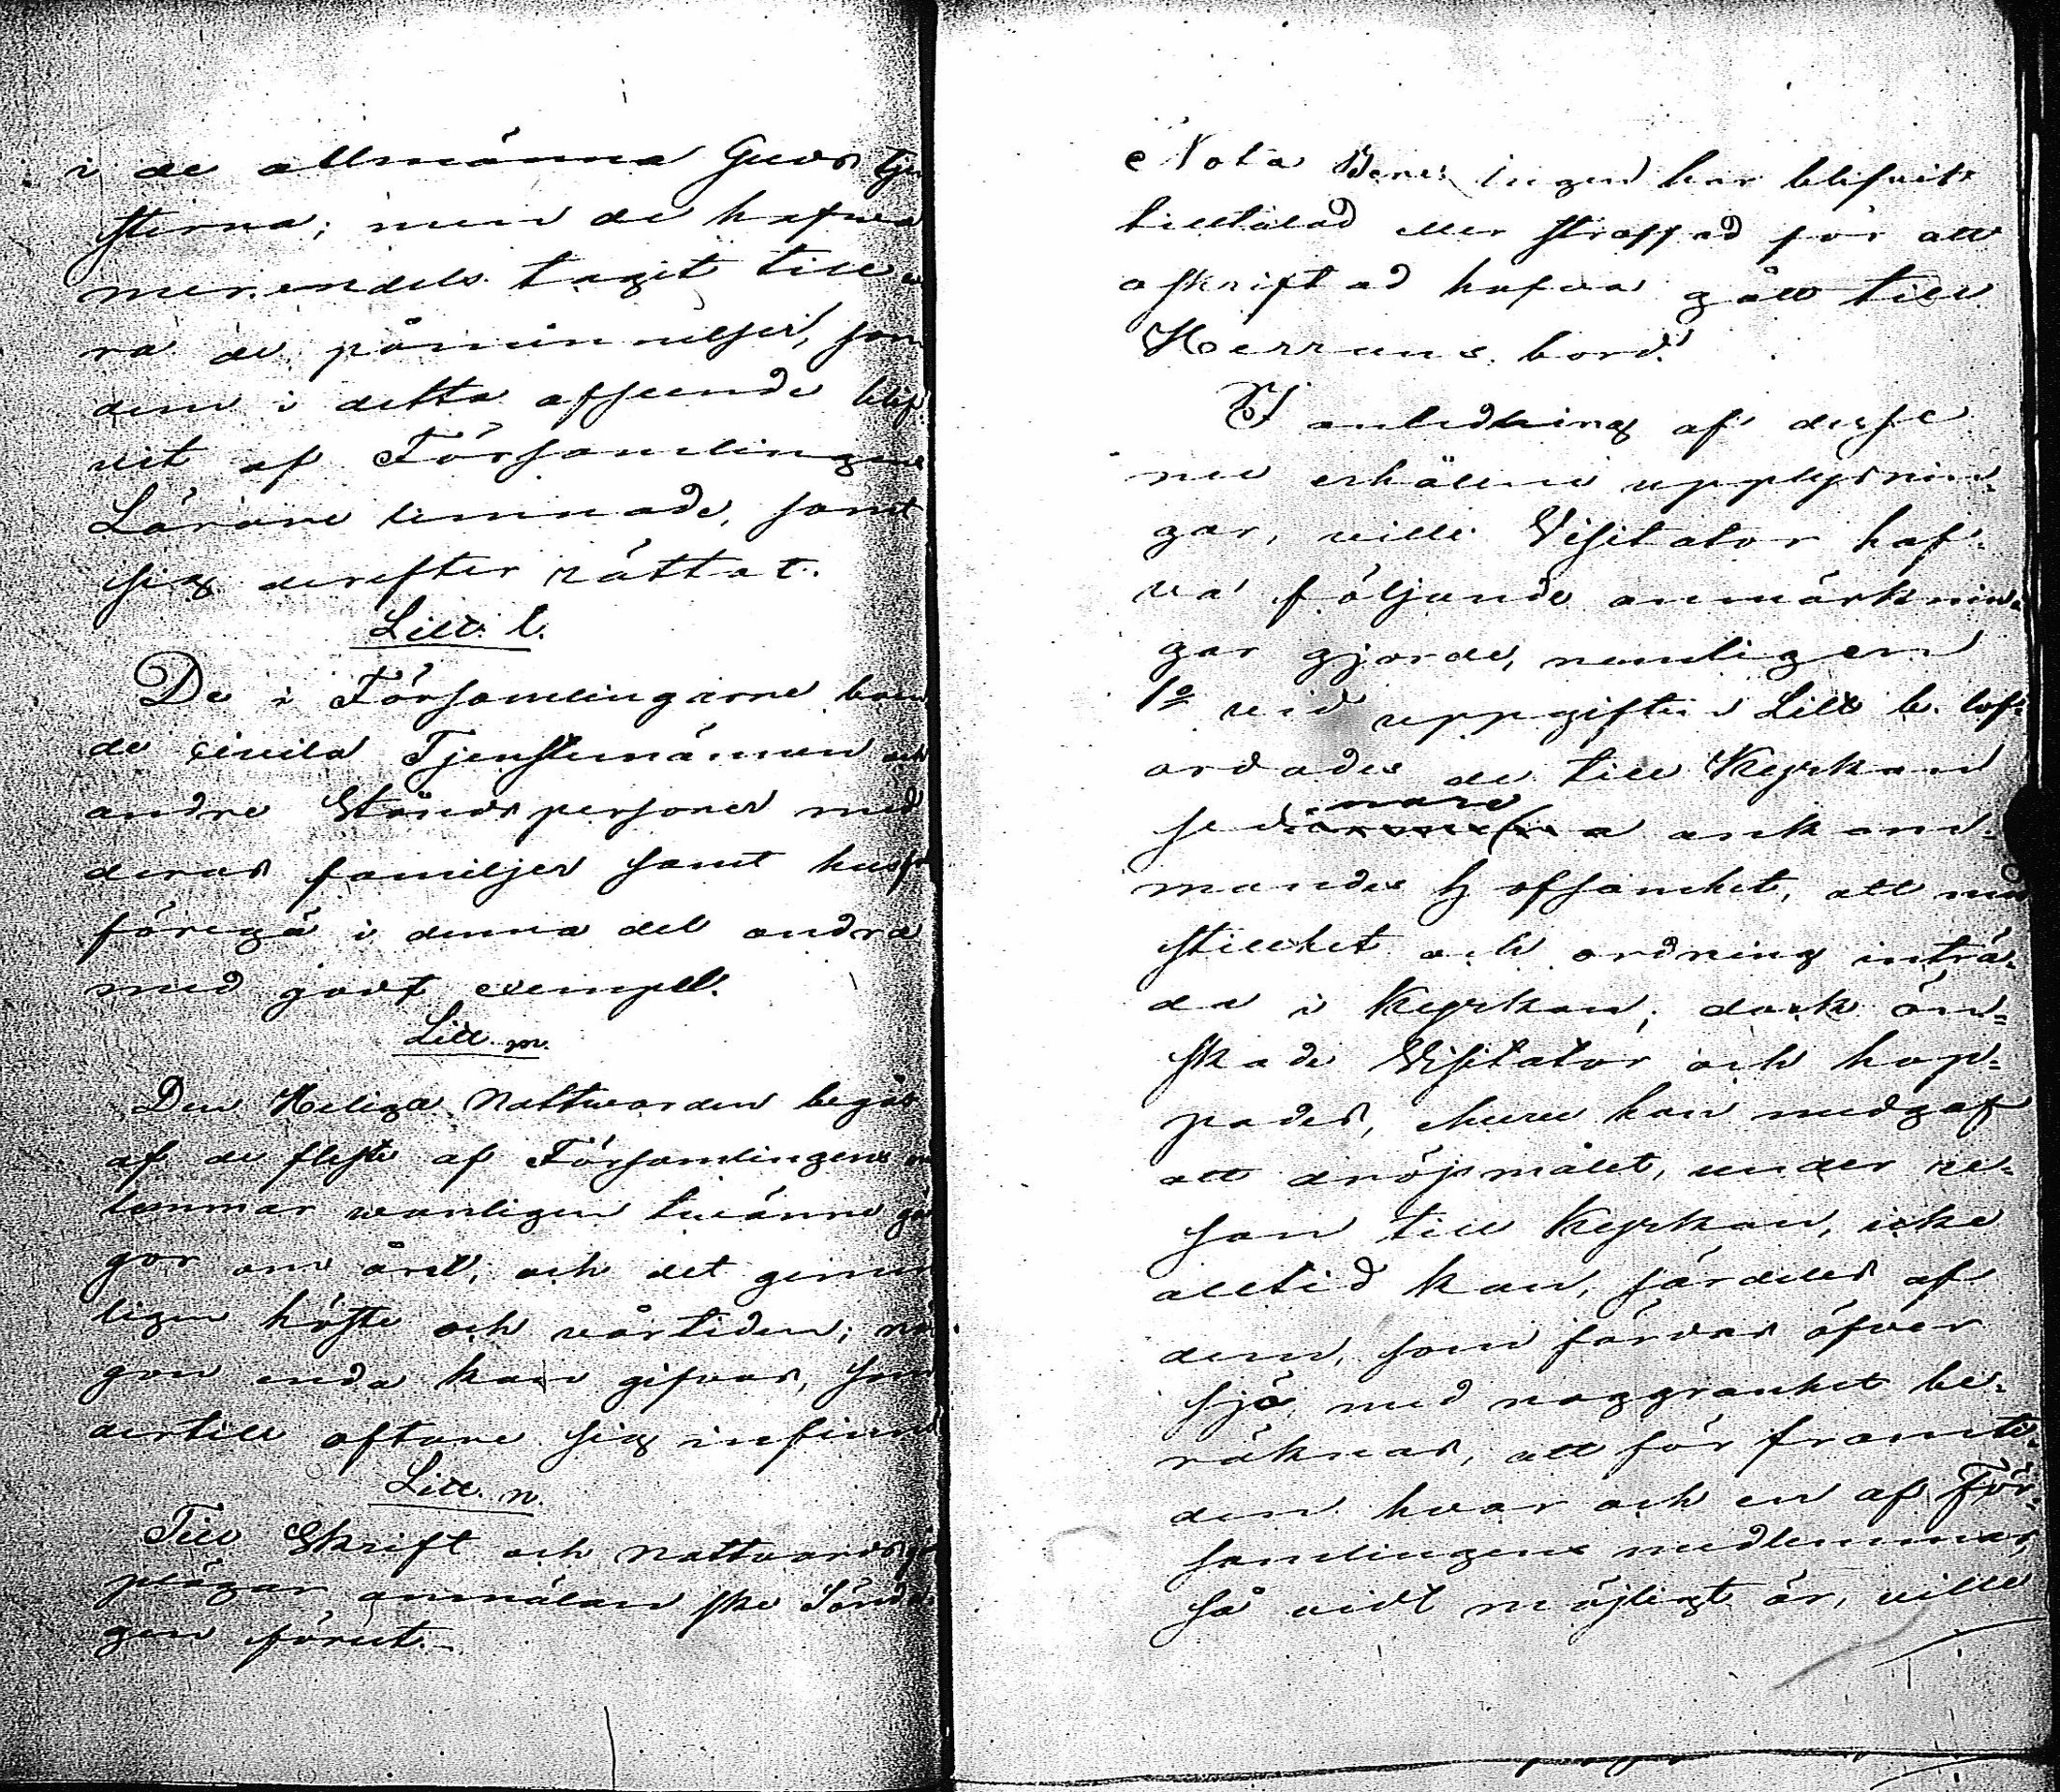 i de allmänna Guds tje
sterna; men de hafva
merendels tagit till
ra de påminnelser, som
dem i detta afseende blif
vit af Församlingens
Lärare lemnade, samt
sig derefter rättat.
Litt. l.
De i Församlingarne boen
de civila Tjenstemännen och
andre Ståndspersoner med
deras familjer samt husf
föregå i denna del andra
med godt exempel.
Litt. m.
Den Heliga Nattvarden begås
af de fleste af Församlingens
lemmar vanligen tvänne gå
gor om året, och det gemen
ligen höste och vårtiden; nå
gon enda kan gifvas, som
dertill oftare sig infinn
Litt. n.
Till Skrift och Nattvards
plägar anmälan ske Sönd
gen förut.
Nota Bene: Ingen har blifvit
tilltalad eller straffad för att
oskriftad hafva gått till
Herrans bord.
I anledning af desse
nu erhållne upplysnin-
gar, ville Visitator haf-
va följande anmärknin-
gar gjorde, nemligen
1o vid uppgiften Litt. b. lof-
ordades de till Kyrkan
sednare ankom-
mandes sofsamhet, att med
stillhet och ordning inträ-
da i Kyrkan; dock ön-
skade Visitator och hop-
pades, ehuru han medgaf
att dröjsmålet, under re-
san till Kyrkan, icke
alltid kan, särdeles af
dem, som färdas öfver
sjö, med noggranhet be-
räknas, att för framti-
den hvar och en af För-
samlingens medlemmar,
så vidt möjligt är, ville